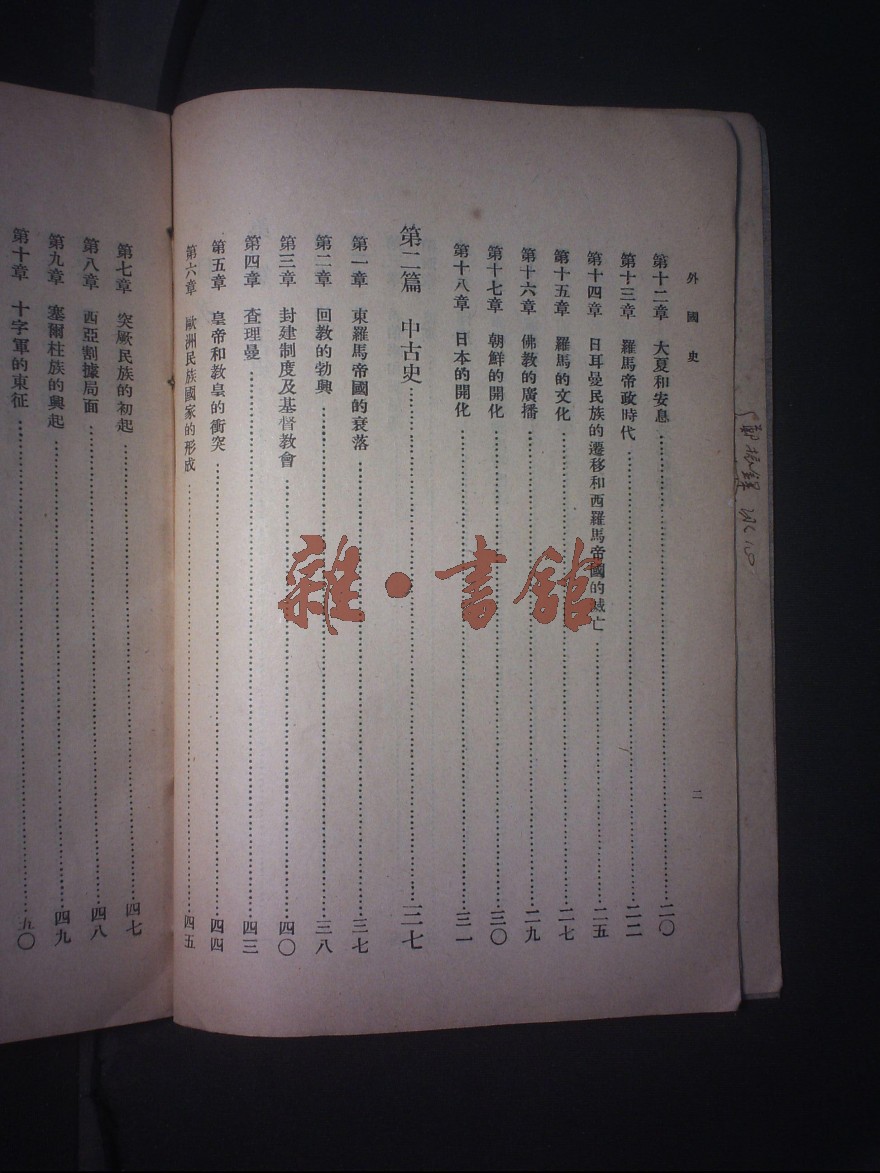 外國史
二
第十二章 大夏和安息……二〇
第十三章 羅馬帝政時代……二二
第十四章 日耳曼民族的遷移和西羅馬帝國的滅亡……二五
第十五章 羅馬的文化……二七
第十六章 佛教的廣播……二九
第十七章 朝鮮的開化……三〇
第十八章 日本的開化……三一
第二篇 中古史……三七
第一章 東羅馬帝國的衰落……三七
第二章 回教的勃興……三八
第三章 封建制度及基督教會……四〇
第四章 查理曼……四三
第五章 皇帝和教皇的衝突……四四
第六章 歐洲民族國家的形成……四五
第七章 突厥民族的初起……四七
第八章 西亞割據局面……四八
第九章 塞爾柱族的興起……四九
第十章 十字軍的東征……五〇
雜·書館